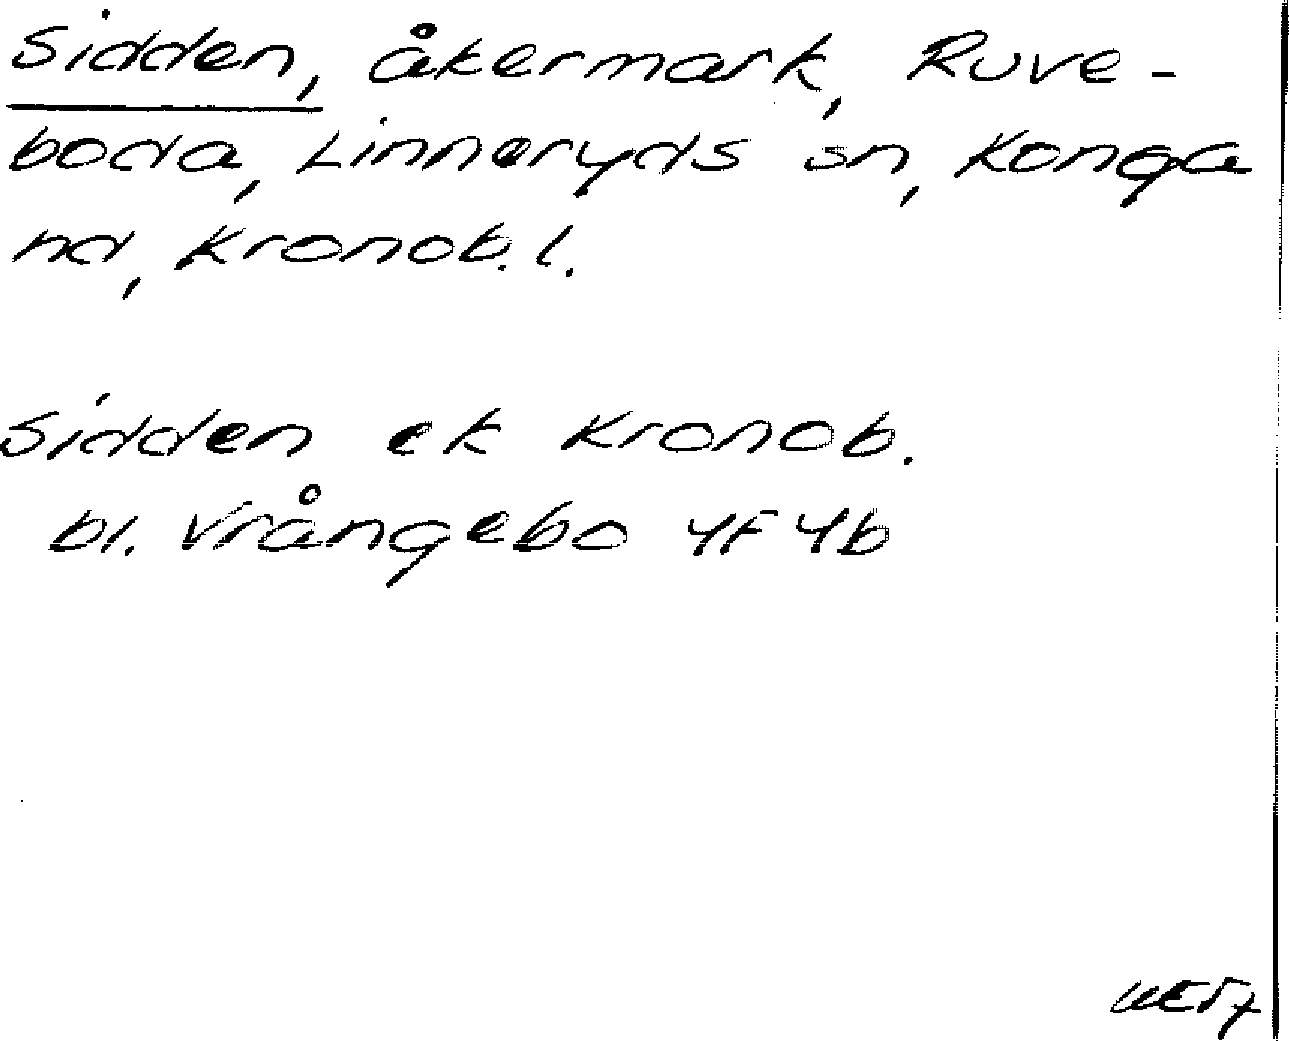 Sidden, åkermark, Ruve-
boda, Linneryds sn, Konga
hd, Kronob. l.
Sidden ek Kronob.
bl. Vrångebo 4F 4b